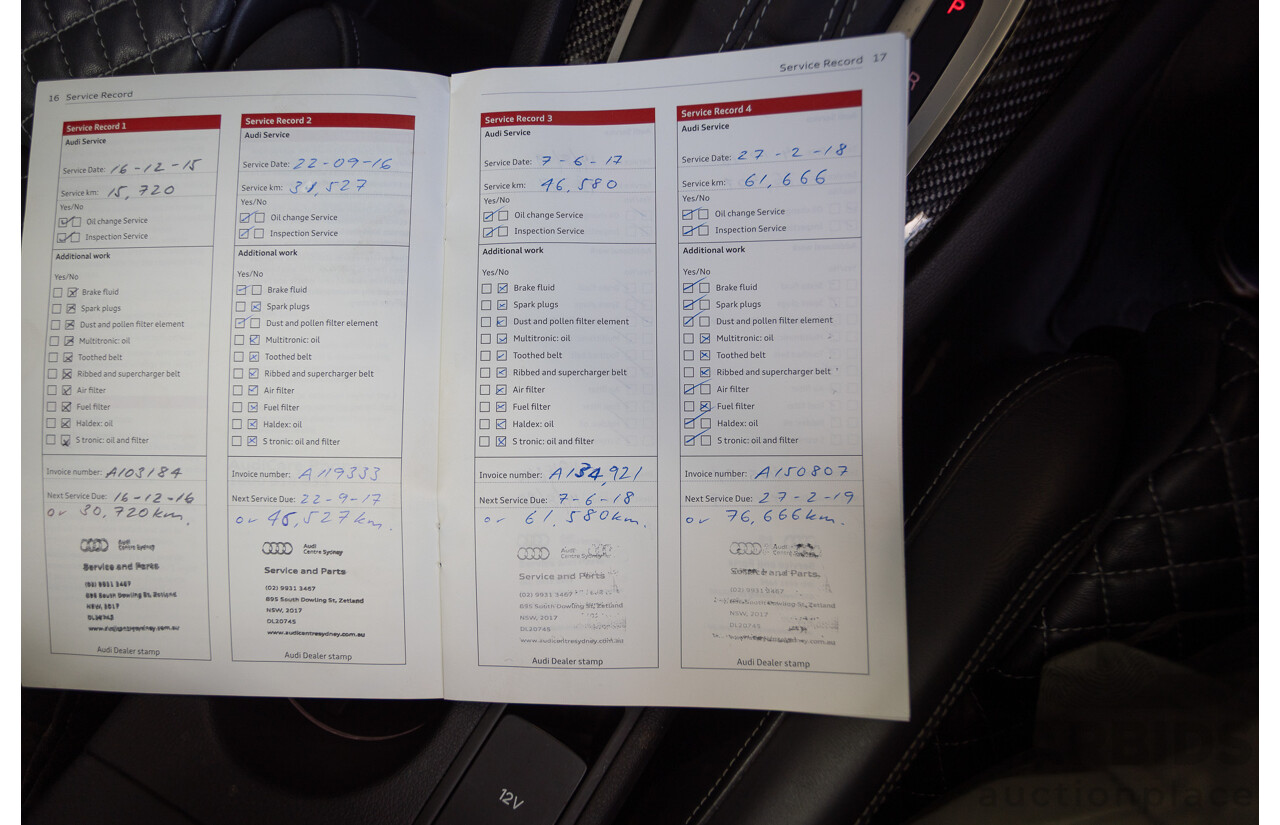 16 Service Record
Service Record 1
Audi Service
Service Date: 16-12-15
Service km: 15,720
Yes/No
Oil change Service
Inspection Service
Additional work
Yes/No
Brake fluid
Spark plugs
Dust and pollen filter element
Multitronic: oil
Toothed belt
Ribbed and supercharger belt
Air filter
Fuel filter
Haldex: oil
S tronic: oil and filter
Invoice number: A103184
Next Service Due: 16-12-16
or 30,720km.
Audi
Centre Sydney
Service and Parts
(02) 9931 3467
895 South Dowling St, Zetland
NSW, 2017
DL20745
www.audicentresydney.com.au
Audi Dealer stamp
Service Record 2
Audi Service
Service Date: 22-09-16
Service km: 31,527
Yes/No
Oil change Service
Inspection Service
Additional work
Yes/No
Brake fluid
Spark plugs
Dust and pollen filter element
Multitronic: oil
Toothed belt
Ribbed and supercharger belt
Air filter
Fuel filter
Haldex: oil
S tronic: oil and filter
Invoice number: A119333
Next Service Due: 22-9-17
or 46,527km.
Audi
Centre Sydney
Service and Parts
(02) 9931 3467
895 South Dowling St, Zetland
NSW, 2017
DL20745
www.audicentresydney.com.au
Audi Dealer stamp
Service Record 17
Service Record 3
Audi Service
Service Date: 7-6-17
Service km: 46,580
Yes/No
Oil change Service
Inspection Service
Additional work
Yes/No
Brake fluid
Spark plugs
Dust and pollen filter element
Multitronic: oil
Toothed belt
Ribbed and supercharger belt
Air filter
Fuel filter
Haldex: oil
S tronic: oil and filter
Invoice number: A134,921
Next Service Due: 7-6-18
or 61,580km.
Audi
Centre Sydney
Service and Parts
(02) 9931 3467
895 South Dowling St, Zetland
NSW, 2017
DL20745
www.audicentresydney.com.au
Audi Dealer stamp
Service Record 4
Audi Service
Service Date: 27-2-18
Service km: 61,666
Yes/No
Oil change Service
Inspection Service
Additional work
Yes/No
Brake fluid
Spark plugs
Dust and pollen filter element
Multitronic: oil
Toothed belt
Ribbed and supercharger belt
Air filter
Fuel filter
Haldex: oil
S tronic: oil and filter
Invoice number: A150807
Next Service Due: 27-2-19
or 76,666km.
Audi
Centre Sydney
Service and Parts
(02) 9931 3467
South Dowling St, Zetland
NSW, 2017
DL20745
Audi Dealer stamp
P
R
12V
auctionplace